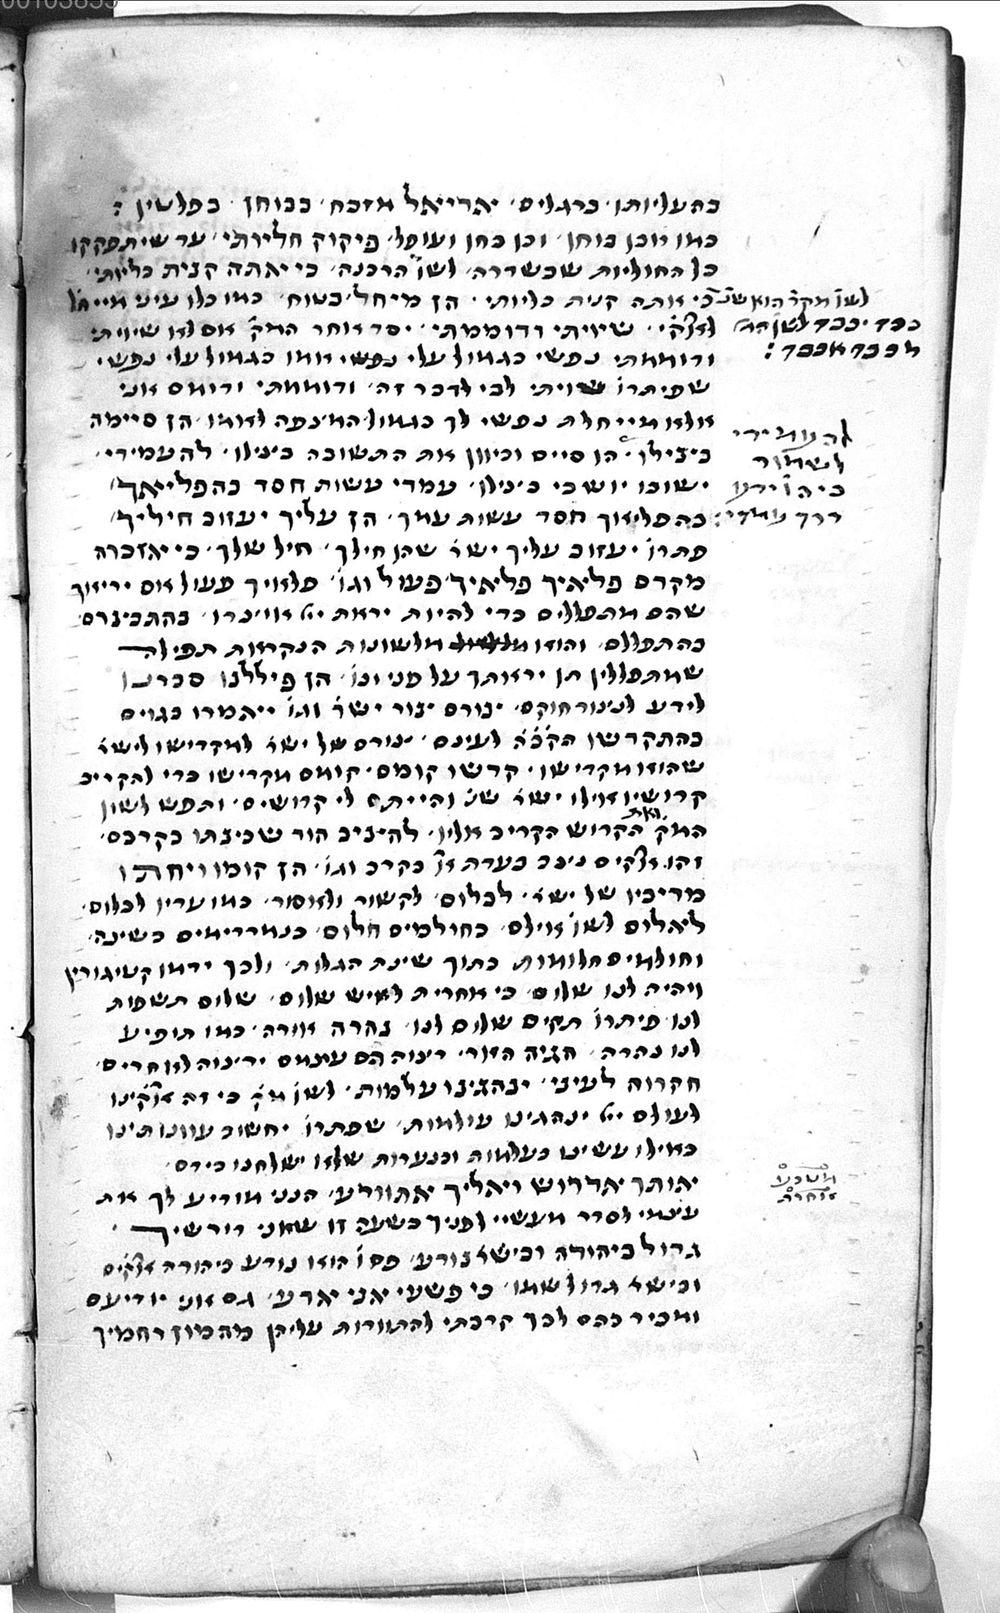 בהעליותו ברגלים׳ יאריאל מזבח׳ בבוחן׳ בפלשין :
כמו אבן בוחן׳ וכן בחן ועופל׳ פיקוק חליותי׳ עד שיתפקקו
כל החוליות שבשדרה׳ לשו׳ הרכנה׳ כי אתה קנית כליותי׳
כי אתה קנית כליותי׳ הן מיחל׳ בטוח׳ כמו כלו עיני מייחל
לאלקי׳ שיויתי ודוממתי׳ יסד אוחר המק׳ אם לא שיויתי
ודוממתי נפשי כגמול עלי נפשי אמו כגמול עלי נפשי
שפיתרו׳ שויתי לבי לדבר זה׳ ודוממתי ודומם אני
אלא מייחלת נפשי לך כגמול המצפה לאמו׳ הן סיימה
בצילו׳ הן סיים וכיוון את התשובה בצילו׳ להעמידי׳
ישובו יושבי בצילו׳ עמדי עשות חסד בהפלייאך׳
בהפליאך חסד עשות עמך׳ הן עליך יעזוב חיליך׳
פתרו׳ יעזוב עליך ישר׳ שהן חילך׳ חיל שלך׳ כי אזכרה
מקדם פליאיך פליאיך׳ פעול וגו׳ פלאיך פעול אם יריאוך
שהם מתפללים כדי להיות יראת ייי אוי׳ ברו׳ בהתביצרם
בהתפללם׳ והוא מלשונות הנקראות תפילה
שמתפללין תן יראתך על פני וכו׳ הן פיללנו סברנו
לידע לנינור חוקם׳ ינורם ינור ישר׳ וגו׳ ייתמרו בגוים
בהתקדשו הק׳ב׳ה לעינם׳ ינורם של ישר׳ למקדישו לישר׳
שהוא מקדישו׳ קדשו קומם׳ קומם מקדישו כדי להקריב
קדושיו אילו ישר׳ שנ׳ והייתם לי קדושים׳ ותפש לשון
המק׳ ואת הקדוש הקריב אליו׳ להיציב הוד שכינתו בקרבם׳
זהו׳ אלקים ניצב בעדת אל בקרב וגו׳ הן קומו ריחתו
מריבין של ישר׳ לבלום׳ לקשור ולאסור׳ כמו עדיו לבלום׳
ליאלום לשו׳ אילם׳ כחולמים חלום׳ כנמרדימים בשינה׳
וחולמים חלומות בתוך שינת הגלות׳ ולכך ידמו קטיגורין
ויהיה לנו שלום׳ כי אחרית לאיש שלום׳ שלום תשפות
לנו׳ פיתרו׳ תקים שלום לנו׳ נהרה אורה׳ כמו תופיע
לנו נהרה׳ הגיה האור׳ רינוה הם עצמם ירינוה לאחרים׳
חקרוה לעיני׳ ינהגינו עלמות׳ לשו׳ מק׳ כי זה אלקינו
לעולם ייי ינהגינו עולמות׳ שפתרו׳ יחשוב עוונותינו
כאילו עשינו בעלמות ובנערות שלא ישלחנו בידם׳
אותך אדרוש ויאליך אתוודע׳ הנני מודיע לך את
עצמי לסדר מעשיי לפניך בשעה זו שאני דורשיך
גדול ביהודה ובישר׳ נודע׳ פסו׳ הוא נודע ביהודה אלקים
ובישר׳ גדול שמו׳ כי פשעי אני אדע׳ גם אני יודיעם
ומכיר בהם לכך קרבתי להתוודות עליהן מהמון רחמיך
לשו׳ מקר׳ הוא שנ׳
כבד יכבד לשון הר׳
מכבד אכבד :
להעמידי
לשמור
כי הו׳ ידעו
דרך עמדי :
משבע
אוחרת